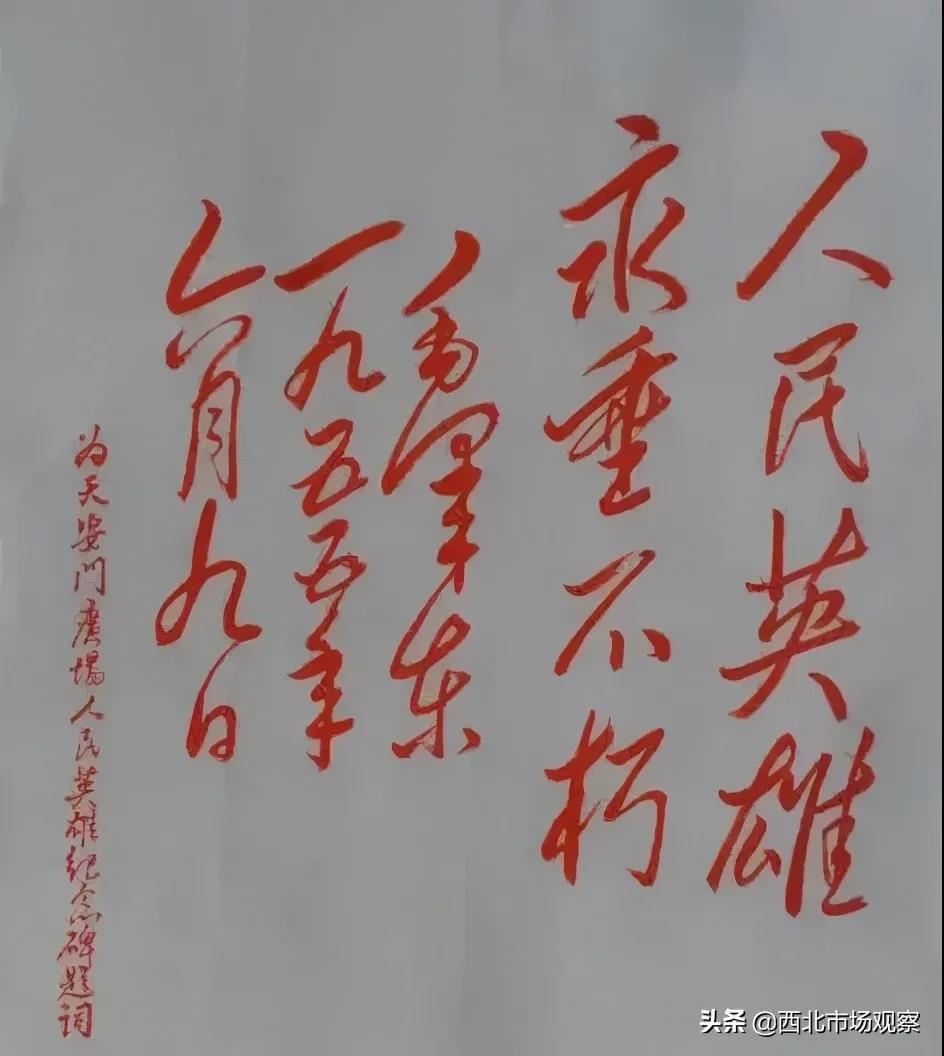 人民英雄
永垂不朽
毛泽东
一九五五年
六月九日
为天安门广场人民英雄纪念碑题词
头条 @西北市场观察